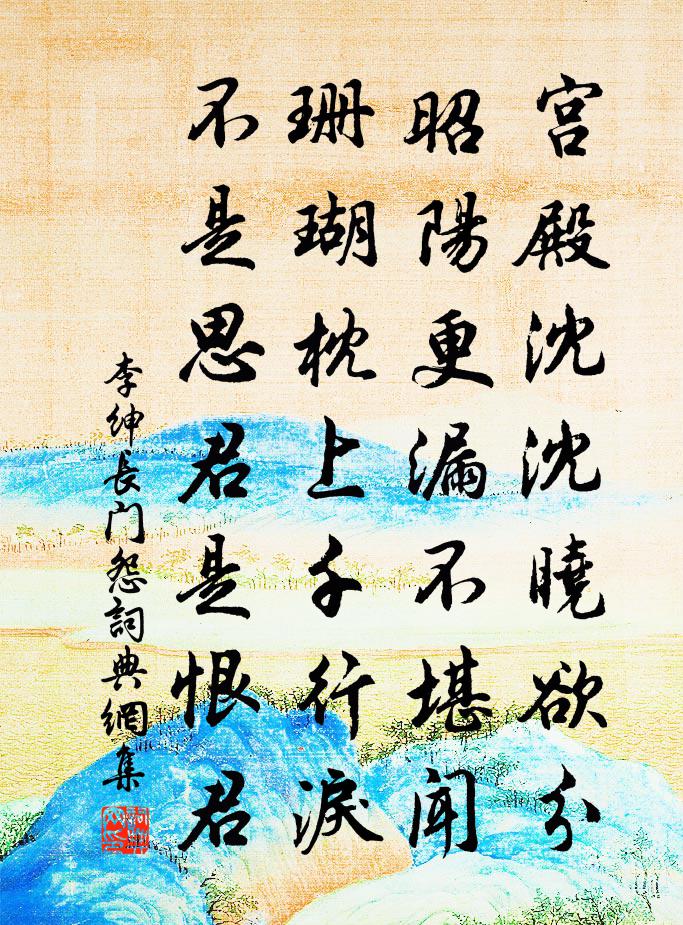 宮殿沈沈曉欲分
昭陽更漏不堪聞
珊瑚枕上千行淚
不是思君是恨君
李紳長門怨詞典網集